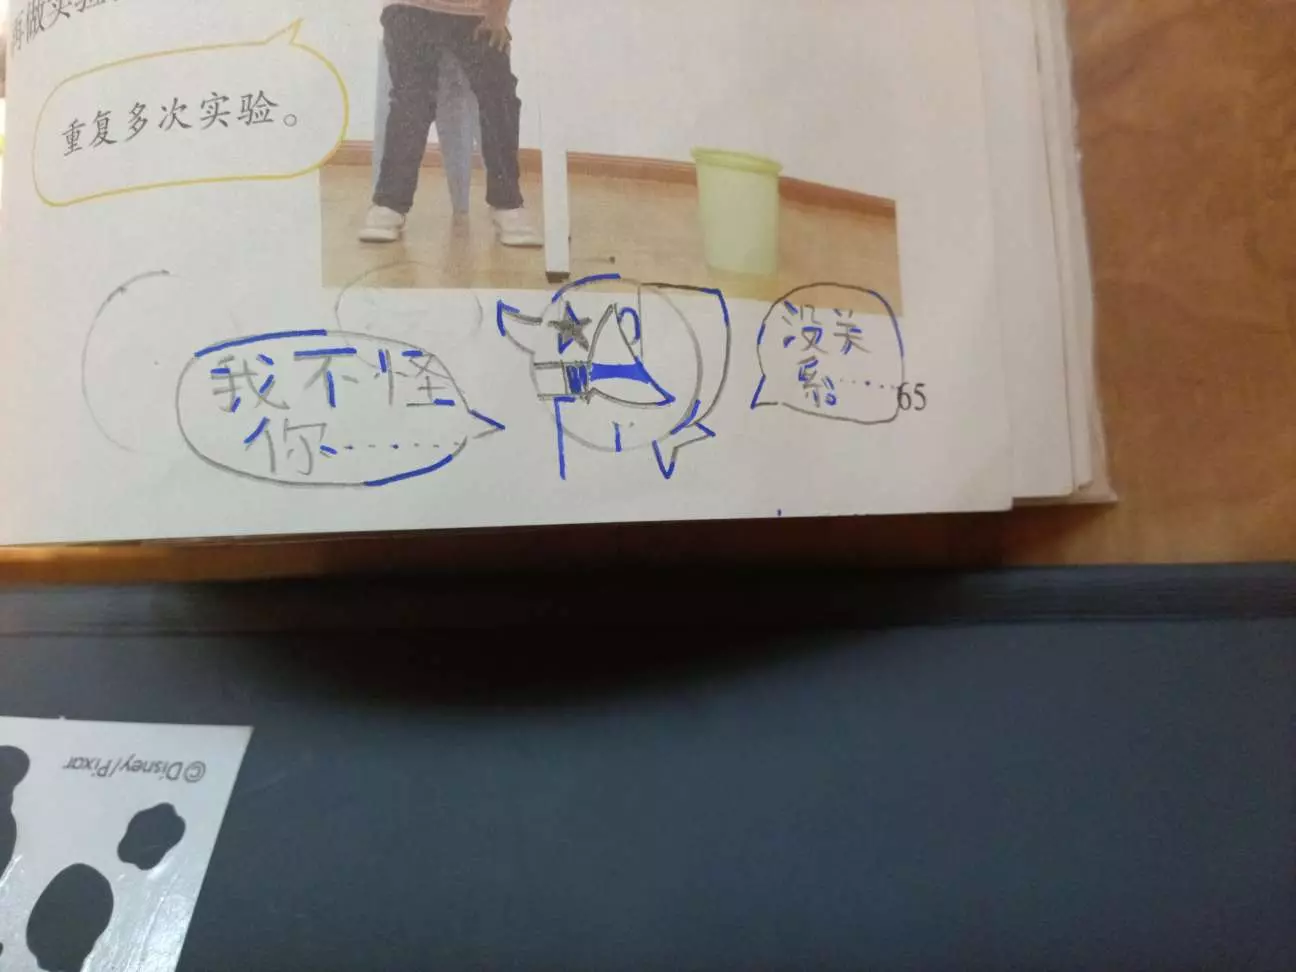 再做实验
重复多次实验。
我不怪
你……
没关
系……
65
©Disney/Pixar